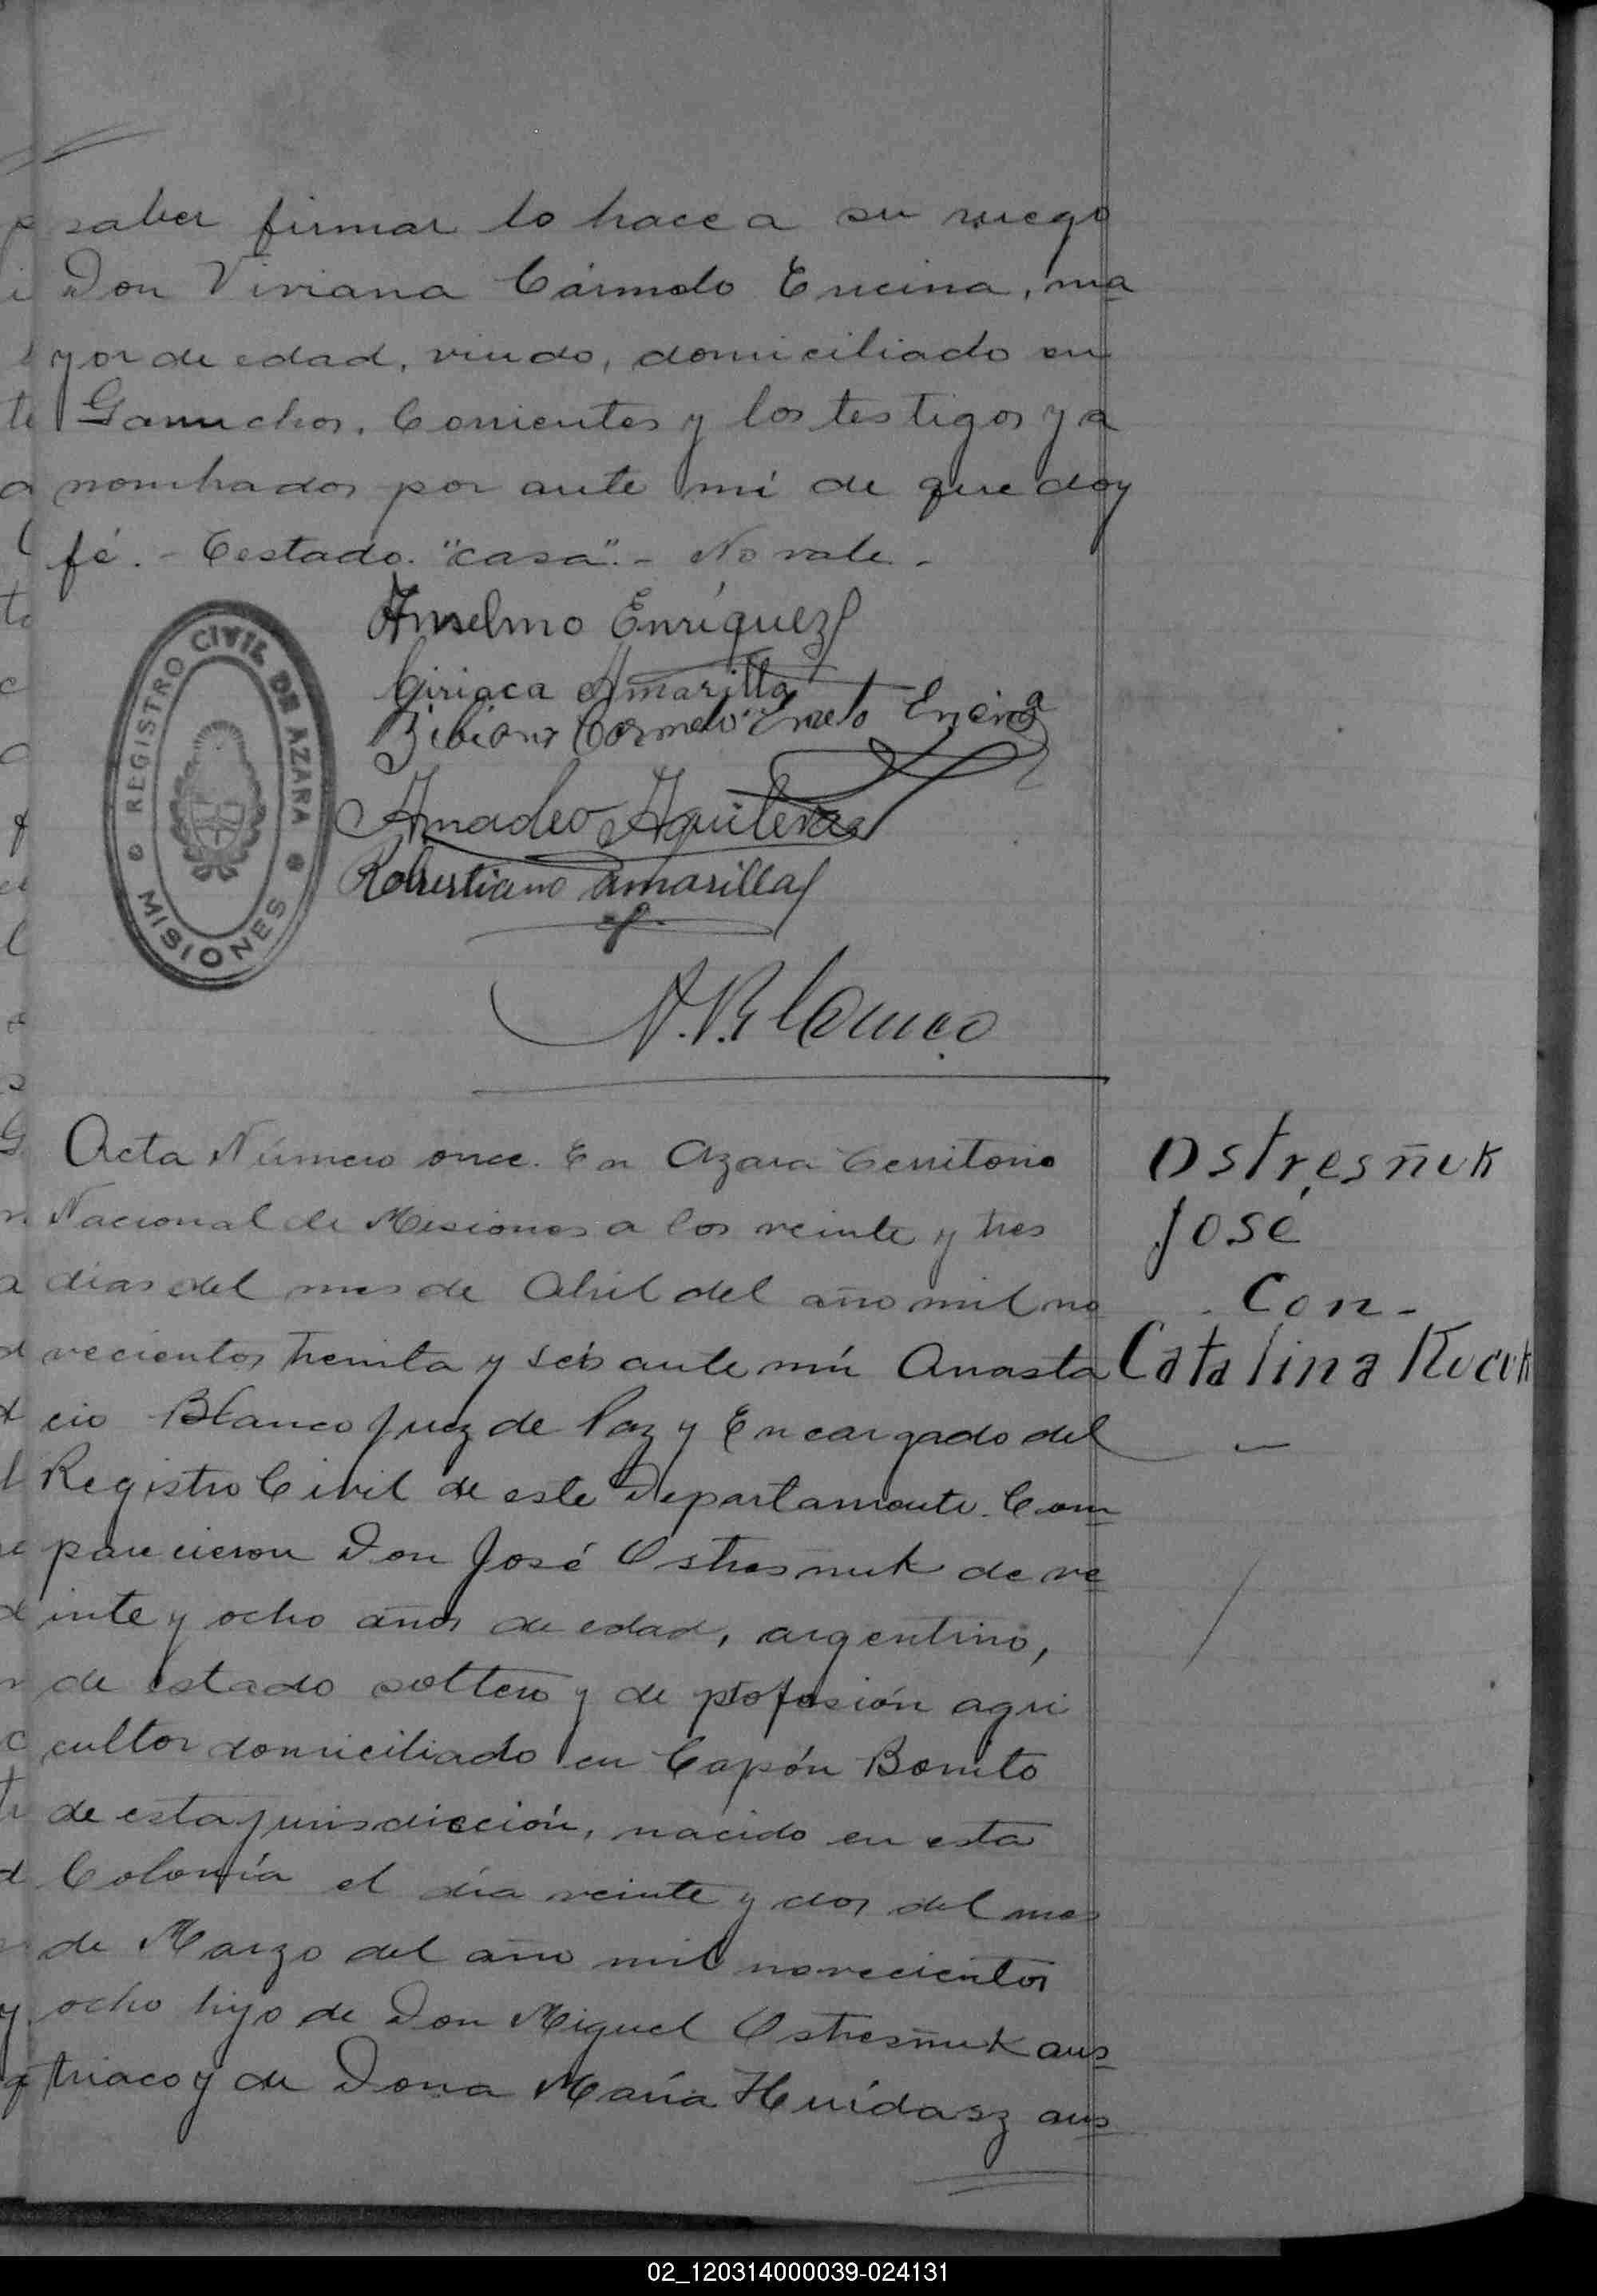 saber firmar lo hace a su ruego
Don Viviana Cármelo Encina, ma
yor de edad, viudo, domiciliado en
Garruchos, Corrientes y los testigos ya
nombrados por ante mí de que doy
fé. - Testado. "casa". - No vale. -
Anselmo Enríquez
Ciriaca Amarilla
Bibiano Cormelo Encina
Amadeo Aguilera
Robustiano Amarilla
A. Blanco
REGISTRO CIVIL DE AZARA
MISIONES
Acta Número once. En Azara Territorio
Nacional de Misiones a los veinte y tres
dias del mes de Abril del año mil no
vecientos treinta y seis ante mí Anasta
cio Blanco Juez de Paz y Encargado del
Registro Civil de este Departamento. Com
parecieron Don José Ostresnuk de ve
inte y ocho años de edad, argentino,
de estado soltero y de profesión agri
cultor domiciliado en Capón Bonito
de esta jurisdicción, nacido en esta
Colonía el día veinte y dos del mes
de Marzo del año mil novecientos
ocho hijo de Don Miguel Ostresñuk aus
triaco y de Dona María Huídasz aus
Ostresñuk
José
- Con -
Catalina Kucuk
02_120314000039-024131